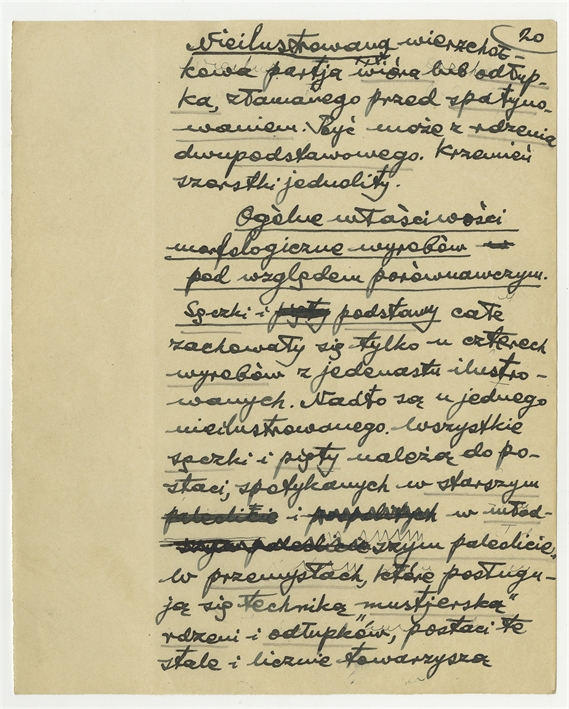 20
Nieilustrowaną wierzchoł-
kowa partja wióra lub odłup-
ka, złamanego przed spatyno-
waniem. Być może z rdzenia
dwupodstawowego. Krzemień
szorstki jednolity.
Ogólne właściwości
morfologiczne wyrobów
pod względem porównawczym.
Sęczki i pięty podstawy całe
zachowały się tylko u czterech
wyrobów z jedenastu ilustro-
wanych. Nadto są u jednego
nieilustrowanego. Wszystkie
sęczki i pięty należą do po-
staci, spotykanych w starszym
paleolicie i w młod-
szym paleolicie,
w przemysłach, które posługu-
ją się techniką „mustjerską"
rdzeni i odłupków, postaci te
stale i licznie towarzyszą